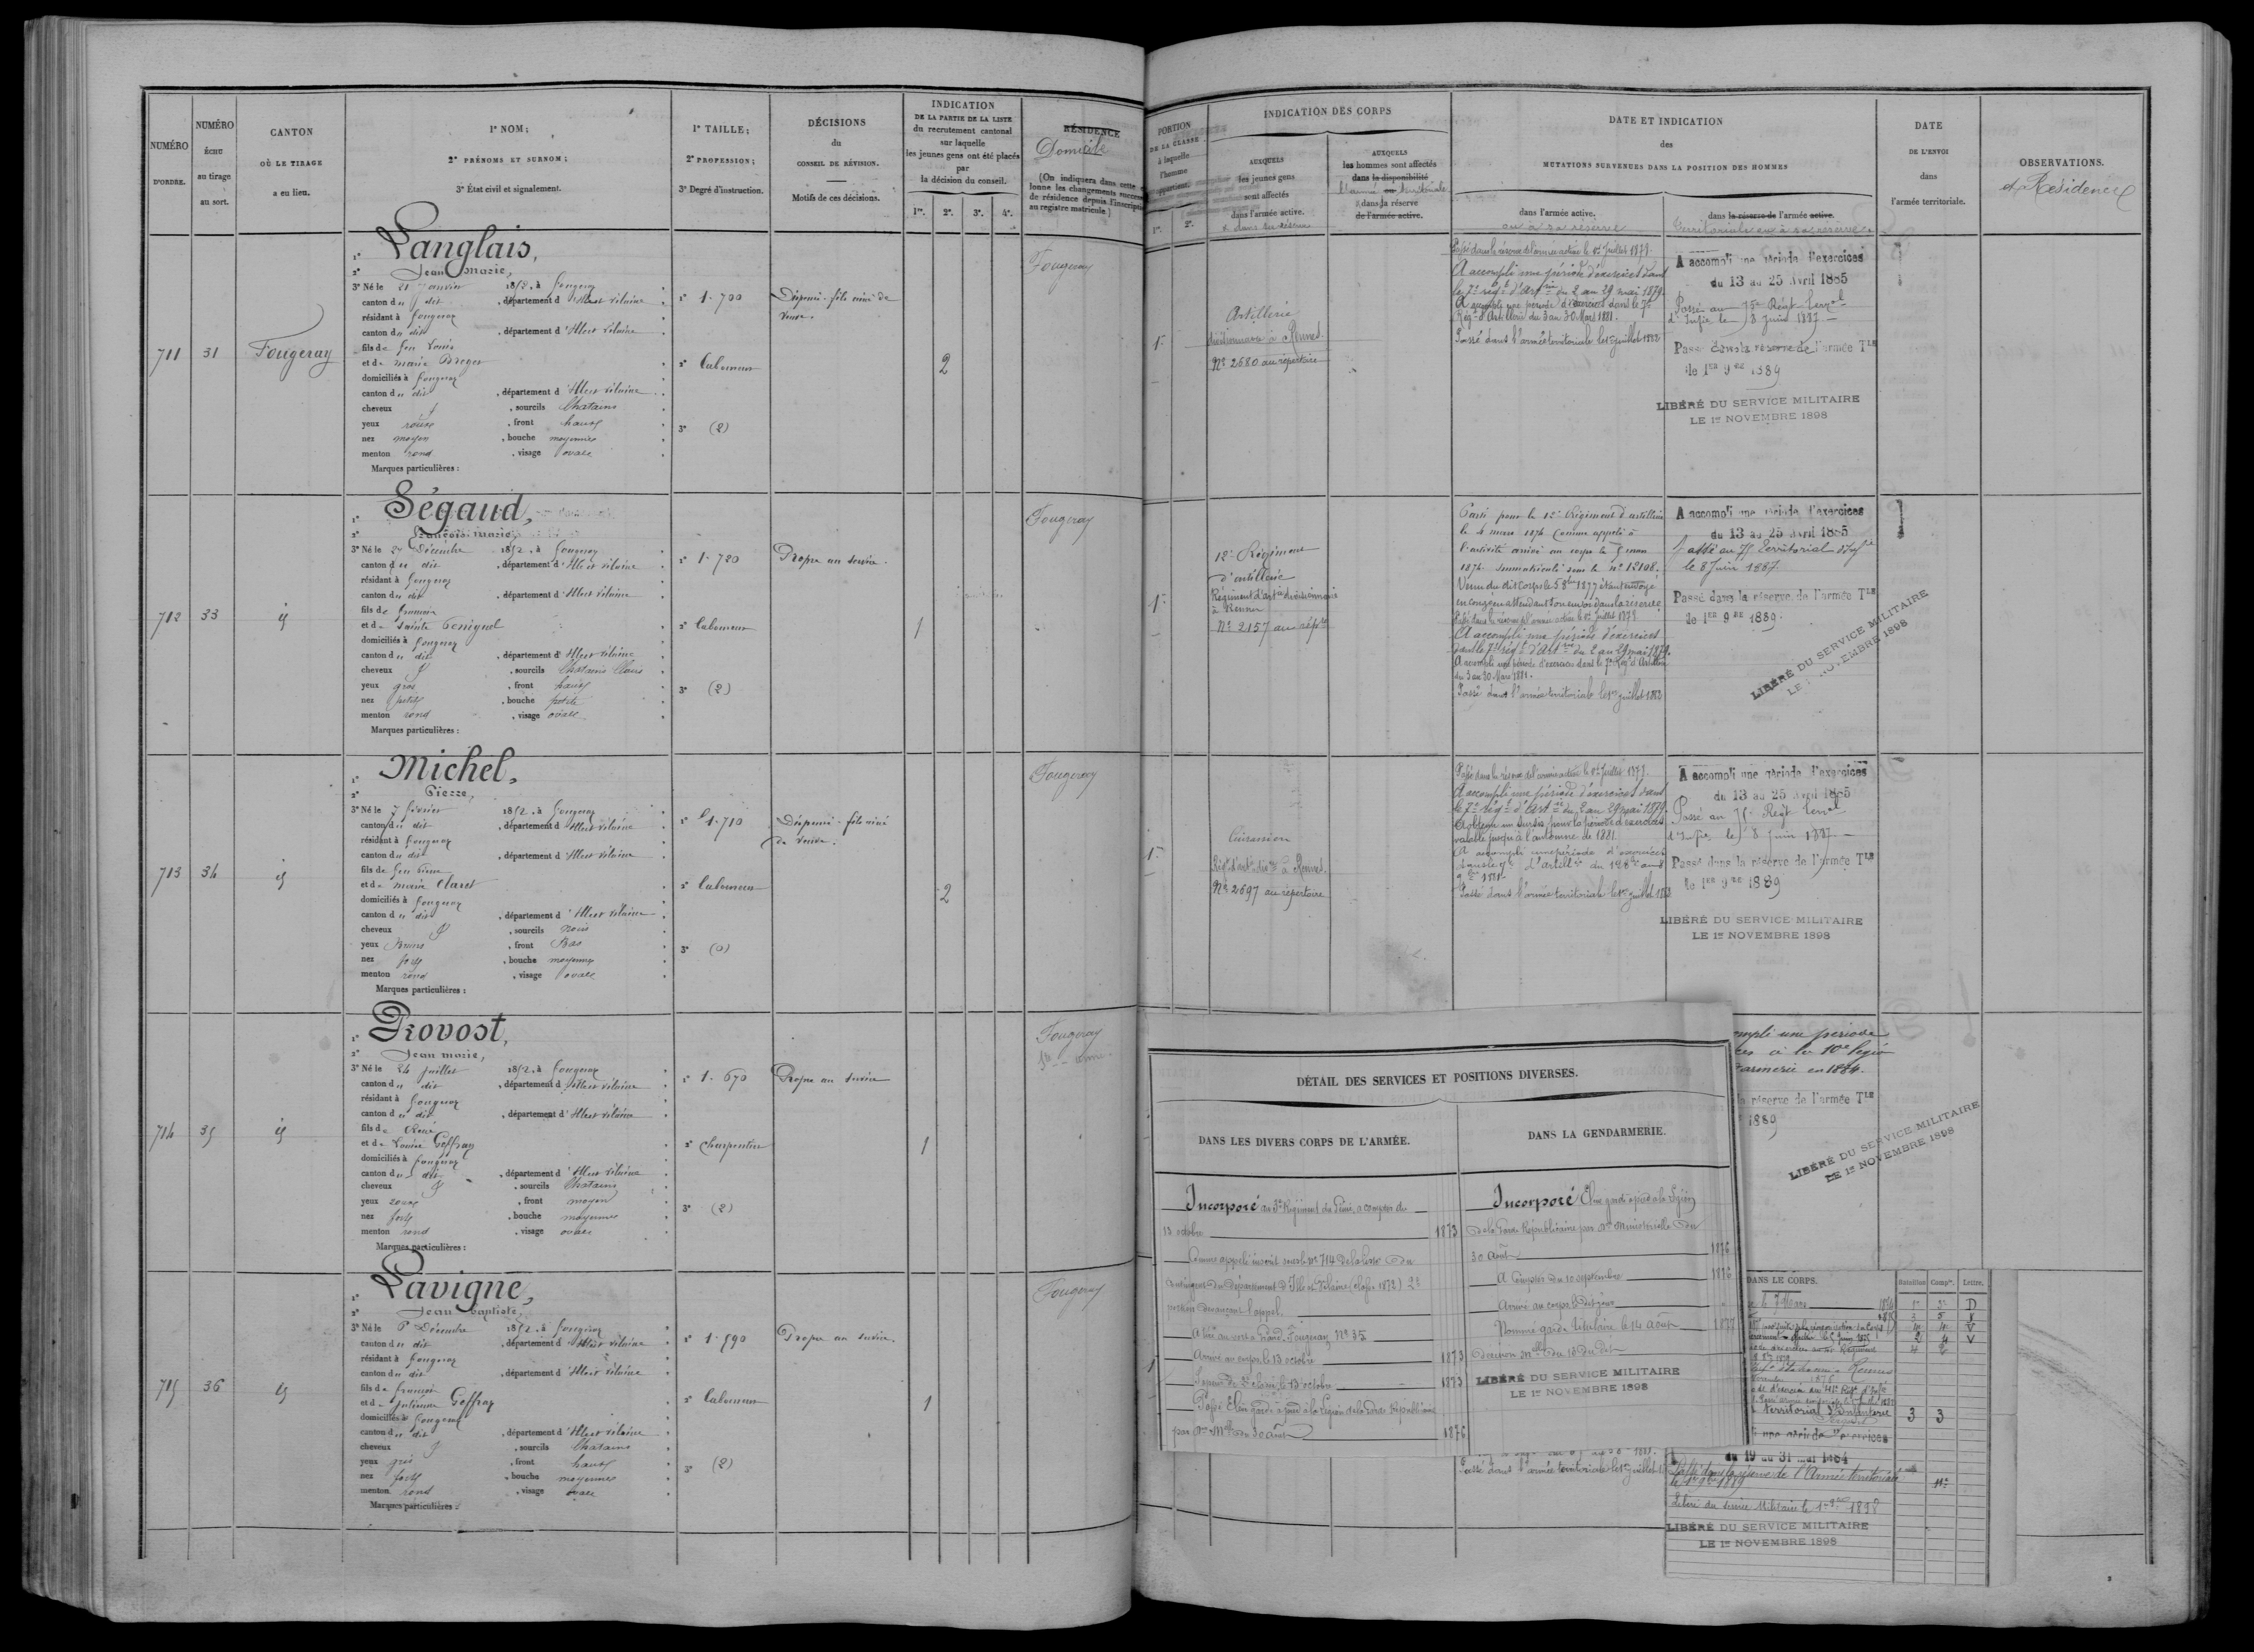 NUMÉRO
D'ORDRE.
NUMÉRO
ÉCHU
au tirage
au sort.
CANTON
OÙ LE TIRAGE
a eu lieu.
1° NOM;
2° PRÉNOMS ET SURNOM;
3° État civil et signalement.
1° TAILLE;
2° PROFESSION;
3° Degré d'instruction.
DÉCISIONS
du
CONSEIL DE RÉVISION.
Motifs de ces décisions.
INDICATION
DE LA PARTIE DE LA LISTE
du recrutement cantonal
sur laquelle
les jeunes gens ont été placés
par
la décision du conseil.
1re. 2e. 3e. 4e.
RÉSIDENCE
Domicile
(On indiquera dans cette
lonne les changements
de résidence depuis l'inscripti
au registre matricule)
PORTION
DE LA CLASSE
à laquelle
l'homme
appartient.
1re. 2e.
INDICATION DES CORPS
AUXQUELS
les jeunes gens
sont affectés
dans l'armée active.
AUXQUELS
les hommes sont affectés
dans la disponibilité
dans la réserve
de l'armée active.
DATE ET INDICATION
des
MUTATIONS SURVENUES DANS LA POSITION DES HOMMES
dans l'armée active.
ou à sa réserve
dans la réserve de l'armée active.
territoriale ou à sa réserve
DATE
DE L'ENVOI
dans
l'armée territoriale.
OBSERVATIONS.
et Residence
711 31 Fougeray
1° Langlais,
2° Jean Marie,
3° Né le 21 Janvier 1852, à Fougeray
canton du dit, département d'Ille et Vilaine
résidant à Fougeray
canton du dit, département d'Ille et Vilaine
fils de feu Louis
et de Marie
domiciliés à Fougeray
canton du dit, département d'Ille et Vilaine
cheveux, sourcils Chatains
yeux roux, front haut
nez moyen, bouche moyenne
menton rond, visage ovale
Marques particulières :
1° 1.700
2° Laboureur
3° (2)
Dispensé. fils aîné de
veuve.
2
Fougeray
1re
Artillerie
divisionnaire à Rennes.
N° 2680 au répertoire
Passé dans la réserve de l'armée active le 1er Juillet 1879.
A accompli une période d'exercices dans
le 7e régt d'Artrie du 2 au 29 mai 1879.
A accompli une période d'exercices dans le 7e
Régt d'Artillerie du 3 au 30 Mars 1881.
Passé dans l'armée territoriale le 1er juillet 1882
A accompli une période d'exercices
du 13 au 25 Avril 1885
Passé au 75e Régt Terral
d'Infie le 8 Juin 1887
Passé dans la réserve de l'armée Tle
le 1er 9bre 1889
LIBÉRÉ DU SERVICE MILITAIRE
LE 1er NOVEMBRE 1898
712 33 id
1° Ségaud,
2° François Marie
3° Né le 27 Décembre 1852, à Fougeray
canton du dit, département d'Ille et Vilaine
résidant à Fougeray
canton du dit, département d'Ille et Vilaine
fils de François
et de Sainte
domiciliés à Fougeray
canton du dit, département d'Ille et Vilaine
cheveux, sourcils Chatains Clairs
yeux gris, front haut
nez petit, bouche petite
menton rond, visage ovale
Marques particulières :
1° 1.720
2° Laboureur
3° (2)
Propre au service.
1
Fougeray
1re
12e Régiment
d'artillerie
Régiment d'artie divisionnaire
à Rennes
N° 2157 au répre
Parti pour le 12e Régiment d'artillerie
le 4 mars 1874 Comme appelé à
l'activité arrivé au corps le 5 mars
1874. immatriculé sous le n° 12108.
Venu du dit Corps le 5 8bre 1877 étant envoyé
en congé en attendant son envoi dans la réserve
Passé dans la réserve de l'armée active le 1er Juillet 1879
A accompli une période d'exercices
dans le 7e régt d'Artrie du 2 au 29 mai 1879.
A accompli une période d'exercices dans le 7e Régt d'Artillerie
du 3 au 30 Mars 1881.
Passé dans l'armée territoriale le 1er juillet 1882
A accompli une période d'exercices
du 13 au 25 Avril 1885
Passé au 75 Territorial d'Infie
le 8 Juin 1887
Passé dans la réserve de l'armée Tle
le 1er 9bre 1889.
LIBÉRÉ DU SERVICE MILITAIRE
LE 1er NOVEMBRE 1898
713 34 id
1° Michel,
2° Pierre,
3° Né le 7 février 1852, à Fougeray
canton du dit, département d'Ille et Vilaine
résidant à Fougeray
canton du dit, département d'Ille et Vilaine
fils de feu Pierre
et de Marie Claret
domiciliés à Fougeray
canton du dit, département d'Ille et Vilaine
cheveux, sourcils noirs
yeux bruns, front Bas
nez fort, bouche moyenne
menton rond, visage ovale
Marques particulières :
1° 1.710
2° Laboureur
3° (0)
Dispensé. fils aîné
de veuve.
2
Fougeray
1re
Cuirassiers
Régt d'artie divre à Rennes.
N° 2697 au répertoire
Passé dans la réserve de l'armée active le 1er Juillet 1879.
A accompli une période d'exercices dans
le 7e régt d'Artrie du 2 au 29 mai 1879.
A obtenu un sursis pour la période d'exercices
valable jusqu'à l'automne de 1881.
A accompli une période d'exercices
Passé dans l'armée territoriale le 1er juillet 1882
A accompli une période d'exercices
du 13 au 25 Avril 1885
Passé au 75e Régt Terral
d'Infie le 8 Juin 1887
Passé dans la réserve de l'armée Tle
le 1er 9bre 1889
LIBÉRÉ DU SERVICE MILITAIRE
LE 1er NOVEMBRE 1898
714 35 id
1° Provost,
2° Jean Marie,
3° Né le 24 juillet 1852, à Fougeray
canton du dit, département d'Ille et Vilaine
résidant à Fougeray
canton du dit, département d'Ille et Vilaine
fils de René
et de Louise Geffray
domiciliés à Fougeray
canton du dit, département d'Ille et Vilaine
cheveux, sourcils Chatains
yeux roux, front moyen
nez fort, bouche moyenne
menton rond, visage ovale
Marques particulières :
1° 1.670
2° Charpentier
3° (2)
Propre au service
1
Fougeray
DÉTAIL DES SERVICES ET POSITIONS DIVERSES.
DANS LES DIVERS CORPS DE L'ARMÉE.
Incorporé au 3e Régiment du Génie, à compter du
13 octobre 1873
Comme appelé inscrit sous le n° 714 de la liste du
contingent du département d'Ille et Vilaine (classe 1872) 2e
portion devançant l'appel.
A tiré au sort à Grand Fougeray N° 35
Arrivé au corps le 13 octobre 1873
Sapeur de 2e classe le 13 octobre 1873
Passé Elève garde à pied à la Légion de la Garde Républicaine
par Don Mlle du 30 août 1876
DANS LA GENDARMERIE.
Incorporé Elève garde à pied à la Légion
de la Garde Républicaine par Don Ministérielle du
30 Août 1876
A compter du 10 septembre 1876
Arrivé au corps le dit jour
Nommé garde titulaire le 14 août 1877
Décision Mlle du 13 du dit
LIBÉRÉ DU SERVICE MILITAIRE
LE 1er NOVEMBRE 1898
ompli une période
ces à la 10e légio
darmerie en 1884.
la réserve de l'armée Tle
1889
LIBÉRÉ DU SERVICE MILITAIRE
LE 1er NOVEMBRE 1898
715 36 id
1° Lavigne,
2° Jean Baptiste,
3° Né le 8 Décembre 1852, à Fougeray
canton du dit, département d'Ille et Vilaine
résidant à Fougeray
canton du dit, département d'Ille et Vilaine
fils de François
et de Julienne Geffray
domiciliés à Fougeray
canton du dit, département d'Ille et Vilaine
cheveux, sourcils Chatains
yeux gris, front haut
nez fort, bouche moyenne
menton rond, visage ovale
Marques particulières :
1° 1.590
2° Laboureur
3° (2)
Propre au service.
1
Fougeray
1
Passé dans l'armée territoriale le 1er juillet
DANS LE CORPS.
Bataillon Compie. Lettre.
territorial d'Infanterie 3 3
du 19 au 31 mai 1884
Passé dans la réserve de l'Armée territoriale
le 1er 9bre 1889
Libéré du service Militaire le 1er 9bre 1898
LIBÉRÉ DU SERVICE MILITAIRE
LE 1er NOVEMBRE 1898